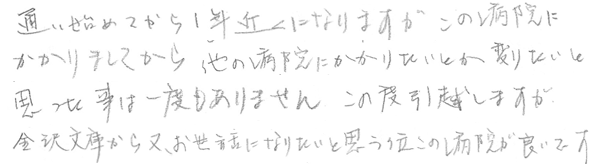 通い始めてから1年近くになりますが この病院に
かかりましてから 他の病院にかかりたいとか変りたいと
思った事は一度もありません この度引越しますが
金沢文庫から又、お世話になりたいと思う位この病院が良いです